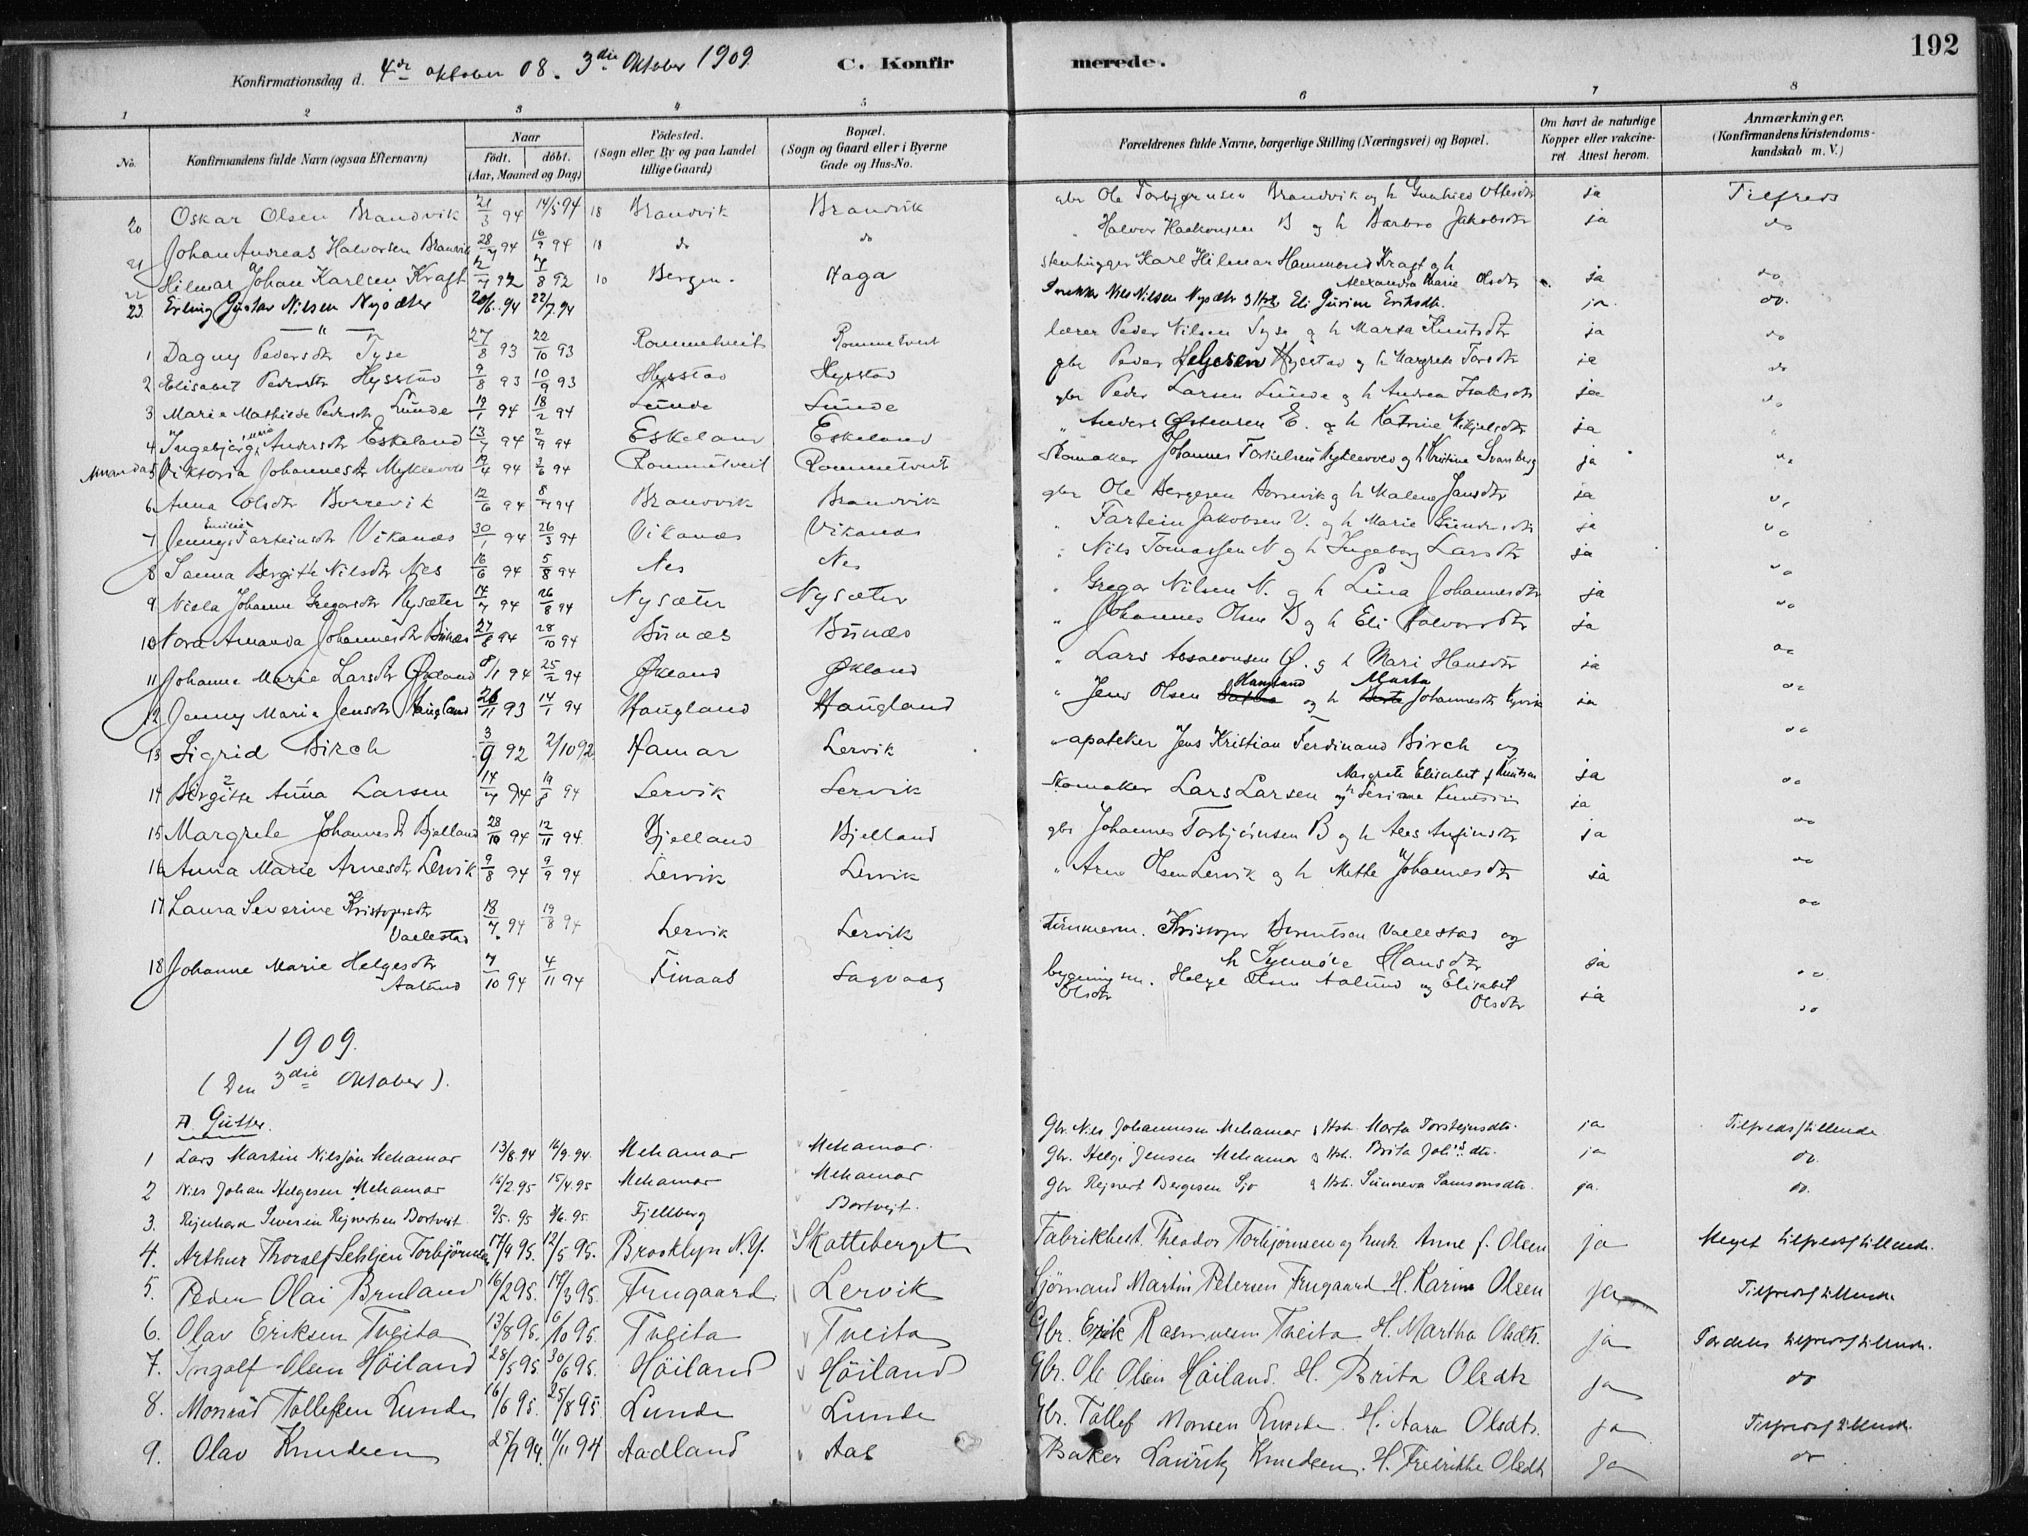 192
Konfirmationsdag d. 4de oktober 08. 3die Oktober 1909.
C. Konfirmerede.
1 2 3 4 5 6 7 8
No. Konfirmandens fulde Navn (ogsaa Efternavn) Naar født. døbt. (Aar, Maaned og Dag) Fødested. (Sogn eller By og paa Landet tillige Gaard) Bopæl. (Sogn og Gaard eller i Byerne Gade og Hus-No. Forældrenes fulde Navne, borgerlige Stilling (Næringsvei) og Bopæl. Om havt de naturlige Kopper eller vakcineret. Attest herom. Anmærkninger. (Konfirmandens Kristendomskundskab m. V.)
20 Oskar Olsen Brandvik 21/3 94 14/5 94 18 Brandvik Brandvik gbr Ole Torbjørnsen Brandvik og h Gunhild Ottesdtr ja Tilfreds
21 Johan Andreas Halvorsen Brandvik 28/7 94 16/9 94 18 do do " Halvor Haakonsen B og h Barbro Jakobsdtr ja do
22 Hilmar Johan Karlsen Kragt 10 Bergen Haga stenhugger Karl Hilmar Hammond Kragt og h Alexandra Marie Olsdtr ja do
23. Erling Gustav Nilsen Nysæter 20/6. 94 22/7. 94 Nils Nilsen Nysæter & Hst. Eli Gurine Eriksdtr. ja do.
— " —
1 Dagny Pedersdtr Tyse 27/8 93 22/10 93 Rommetveit Rommetveit lærer Peder Nilsen Tyse og h Marta Knutsdtr ja do
2 Elisabet Pedersdtr Hysstad 9/8 93 10/9 93 Hysstad Hysstad gbr Peder Helgesen Hysstad og h Margrete Torsdtr ja do
3 Marie Mathilde Pedersdtr Lunde 19/1 94 18/2 94 Lunde Lunde gbr Peder Larsen Lunde og h Andrea Isaksdtr ja do
4 Ingebjørg Andersdtr Eskeland 13/7 94 2/9 94 Eskeland Eskeland " Anders Østensen E. og h Katrine Mikjelsdtr ja "
Amanda 5 Viktoria Johannesdtr Myklevold 19/4 94 3/6 94 Rommetveit Rommetveit Skomaker Johannes Torkelsen Myklevold og h Kristine Svanberg ja "
6 Anna Olsdtr Borrevik 12/6 94 8/7 94 Brandvik Brandvik gbr Ole Bergesen Borrevik og h Malene Jansdtr ja do
7 Jenny Emilie Farteinsdtr Vikanes 30/1 94 26/3 94 Vikanes Vikanes " Fartein Jakobsen V. og h Marie Gundersdtr ja do
8 Sanna Bergitte Nilsdtr Nes 16/6 94 5/8 94 Nes Nes " Nils Tomassen N og h Ingeborg Larsdtr ja do
9 Nisla Johanne Gregarsdtr Nysæter 14/7 94 26/8 94 Nysæter Nysæter " Gregar Nilsen N. og h Lina Johannesdtr ja do
10 Nora Amanda Johannesdtr Bunæs 27/8 94 28/10 94 Bunæs Bunæs " Johannes Olsen B og h Eli Halvorsdtr ja do
11 Johanne Marie Larsdtr Økland 8/1 94 25/2 94 Økland Økland " Lars Absalonsen Ø. og h Mari Hansdtr ja do
12 Jenny Marie Jensdtr Haugland 26/11 93 14/1 94 Haugland Haugland " Jens Olsen Haugland og h Marta Johannesdtr ja do
13 Sigrid Birch 3/9 92 2/10 92 Hamar Lervik apoteker Jens Kristian Ferdinand Birch og Margrete Elisabet f Knutsen ja do
14 Bergitte Anna Larsen 14/7 94 19/8 94 Lervik Lervik Skomaker Lars Larsen og h Serianne ja do
15 Margrete Johannesdtr Bjelland 28/10 94 12/11 94 Bjelland Bjelland gbr Johannes Torbjørnsen B og h Ales Anfinsdtr ja do
16 Anna Marie Arnesdtr Lervik 9/8 94 9/9 94 Lervik Lervik " Arne Olsen Lervik og h Mette Johannesdtr ja do
17 Laura Severine Kristophersdtr Vallestad 18/7 94 19/8 94 Lervik Lervik tømmerm. Kristoper Berentsen Vallestad og h Synnøve Hansdtr ja do
18 Johanne Marie Helgesdtr Aalund 7/10 94 4/11 94 Finaas Sagvaag bygningsm. Helge Olsen Aalund og Elisabet Olsdtr ja do
1909.
(Den 3die Oktober).
A. Gutter.
1 Lars Martin Nilssøn Mehamar 13/8. 94 16/9. 94. Mehamar Mehamar. Gbr. Nils Johannesen Mehamar & Hst. Marta Torsteinsdtr. ja Tilfredsstillende
2 Nils Johan Helgesen Mehamar 16/2. 95 15/4. 95 Mehamar Mehamar Gbr. Helge Jensen Mehamar & Hst. Brita Joh's dtr. ja do.
3. Rejnhard Severin Rejnertsen Bortveit 2/5. 95 3/6. 95. Fjellberg Bortvejt. Gbr Rejnert Bergesen Sjo & Hst. Sunneva Samsonsdtr. ja. do.
4. Arthur Thoralf Torbjørnsen 17/4 95. 12/5 95. Brooklyn N.Y. Skotteberget Fabrikbest. Theodor Torbjørnsen og hust. Anne f. Olsen ja Meget tilfredsstillende.
5. Peder Olai Bruland 16/2 95. 17/3 95. Frugaard Lervik Sjømand Martin Petersen Frugaard H. Karine Olsen ja Tilfredsstillende
6. Olav Eriksen Tveita 13/8 95. 6/10 95. Tveita Tveita Gbr. Erik Rasmusen Tveita H. Martha Olsdtr. ja Fordeles tilfredsstillende.
7. Ingolf Olsen Høiland 28/5 95. 30/6 95. Høiland Høiland Gbr. Ole Olsen Høiland. H. Brita Olsdtr ja do
8. Monrad Tollefsen Lunde 16/6 95. 25/8 95 Lunde Lunde Gbr. Tollef Monsen Lunde. H. Aara Olsdtr. ja Tilfredsstillende.
9. Olav Knudsen 25/9 94. 11/11 94 Aadland Aas Baker Lauritz Knudsen. H. Fredrikke Olsdtr ja do